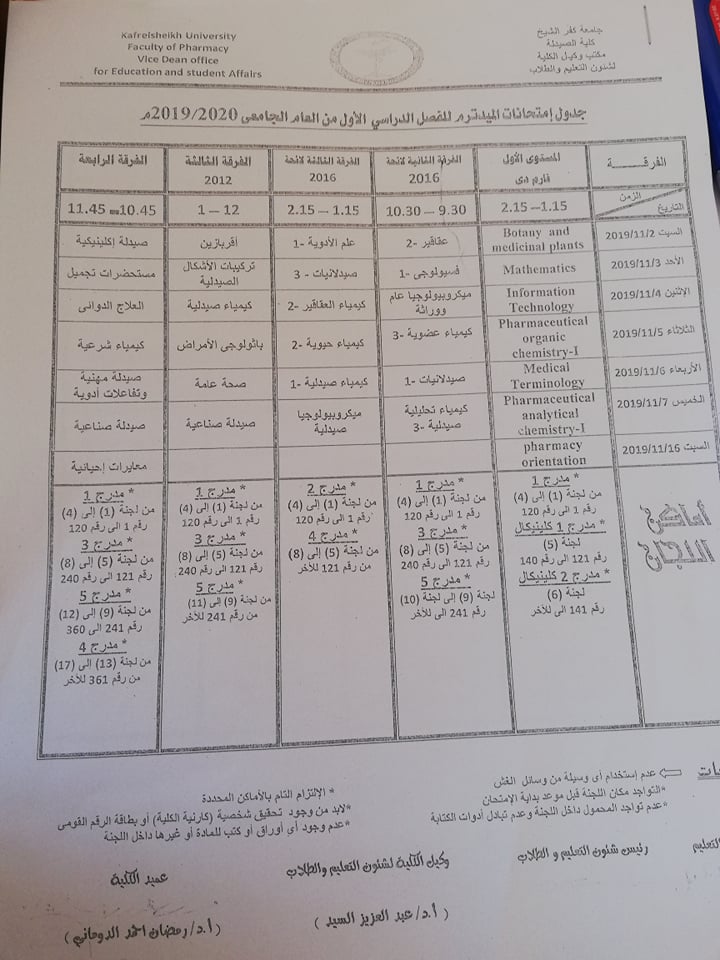 جامعة كفر الشيخ
كلية الصيدلة
مكتب وكيل الكلية
لشئون التعليم والطلاب
Kafrelsheikh University
Faculty of Pharmacy
Vice Dean office
for Education and student Affairs
جدول إمتحانات الميدترم للفصل الدراسي الأول من العام الجامعى 2019/2020م
الفرقــــــة | المستوى الأول فارم دى | الفرقة الثانية لائحة 2016 | الفرقة الثالثة لائحة 2016 | الفرقة الثالثة 2012 | الفرقة الرابعة
الزمن / التاريخ | 1.15 – 2.15 | 9.30 – 10.30 | 1.15 – 2.15 | 12 – 1 | 10.45 – 11.45
السبت 2019/11/2 | Botany and medicinal plants | عقاقير -2 | علم الأدوية -1 | أقربازين | صيدلة إكلينيكية
الأحد 2019/11/3 | Mathematics | فسيولوجى -1 | صيدلانيات - 3 | تركيبات الأشكال الصيدلية | مستحضرات تجميل
الإثنين 2019/11/4 | Information Technology | ميكروبيولوجيا عام ووراثة | كيمياء العقاقير -2 | كيمياء صيدلية | العلاج الدوائى
الثلاثاء 2019/11/5 | Pharmaceutical organic chemistry-I | كيمياء عضوية -3 | كيمياء حيوية -2 | باثولوجى الأمراض | كيمياء شرعية
الأربعاء 2019/11/6 | Medical Terminology | صيدلانيات -1 | كيمياء صيدلية -1 | صحة عامة | صيدلة مهنية وتفاعلات أدوية
الخميس 2019/11/7 | Pharmaceutical analytical chemistry-I | كيمياء تحليلية صيدلية -3 | ميكروبيولوجيا صيدلية | صيدلة صناعية | صيدلة صناعية
السبت 2019/11/16 | pharmacy orientation | معايرات إحيائية
أماكن اللجان
* مدرج 1
من لجنة (1) إلى (4)
رقم 1 الى رقم 120
* مدرج 1 كلينيكال
لجنة (5)
رقم 121 الى رقم 140
* مدرج 2 كلينيكال
لجنة (6)
رقم 141 الى للأخر
* مدرج 1
من لجنة (1) إلى (4)
رقم 1 الى رقم 120
* مدرج 3
من لجنة (5) إلى (8)
رقم 121 الى رقم 240
* مدرج 5
لجنة (9) إلى لجنة (10)
رقم 241 الى للأخر
* مدرج 2
من لجنة (1) إلى (4)
رقم 1 الى رقم 120
* مدرج 4
من لجنة (5) إلى (8)
من رقم 121 للأخر
* مدرج 1
من لجنة (1) إلى (4)
رقم 1 الى رقم 120
* مدرج 3
من لجنة (5) إلى (8)
رقم 121 الى رقم 240
* مدرج 5
من لجنة (9) إلى (11)
من رقم 241 للأخر
* مدرج 1
من لجنة (1) إلى (4)
رقم 1 الى رقم 120
* مدرج 3
من لجنة (5) إلى (8)
رقم 121 الى رقم 240
* مدرج 5
من لجنة (9) إلى (12)
رقم 241 الى رقم 360
* مدرج 4
من لجنة (13) إلى (17)
من رقم 361 للأخر
عدم إستخدام أى وسيلة من وسائل الغش
*التواجد مكان اللجنة قبل موعد بداية الإمتحان
*عدم تواجد المحمول داخل اللجنة وعدم تبادل أدوات الكتابة
* الإلتزام التام بالأماكن المحددة
*لابد من وجود تحقيق شخصية (كارنية الكلية) أو بطاقة الرقم القومى
*عدم وجود أى أوراق أو كتب للمادة أو غيرها داخل اللجنة
رئيس شئون التعليم و الطلاب
وكيل الكلية لشئون التعليم والطلاب
عميد الكلية
(أ.د/ عبد العزيز السيد)
(أ.د/ رمضان احمد الدوماني)